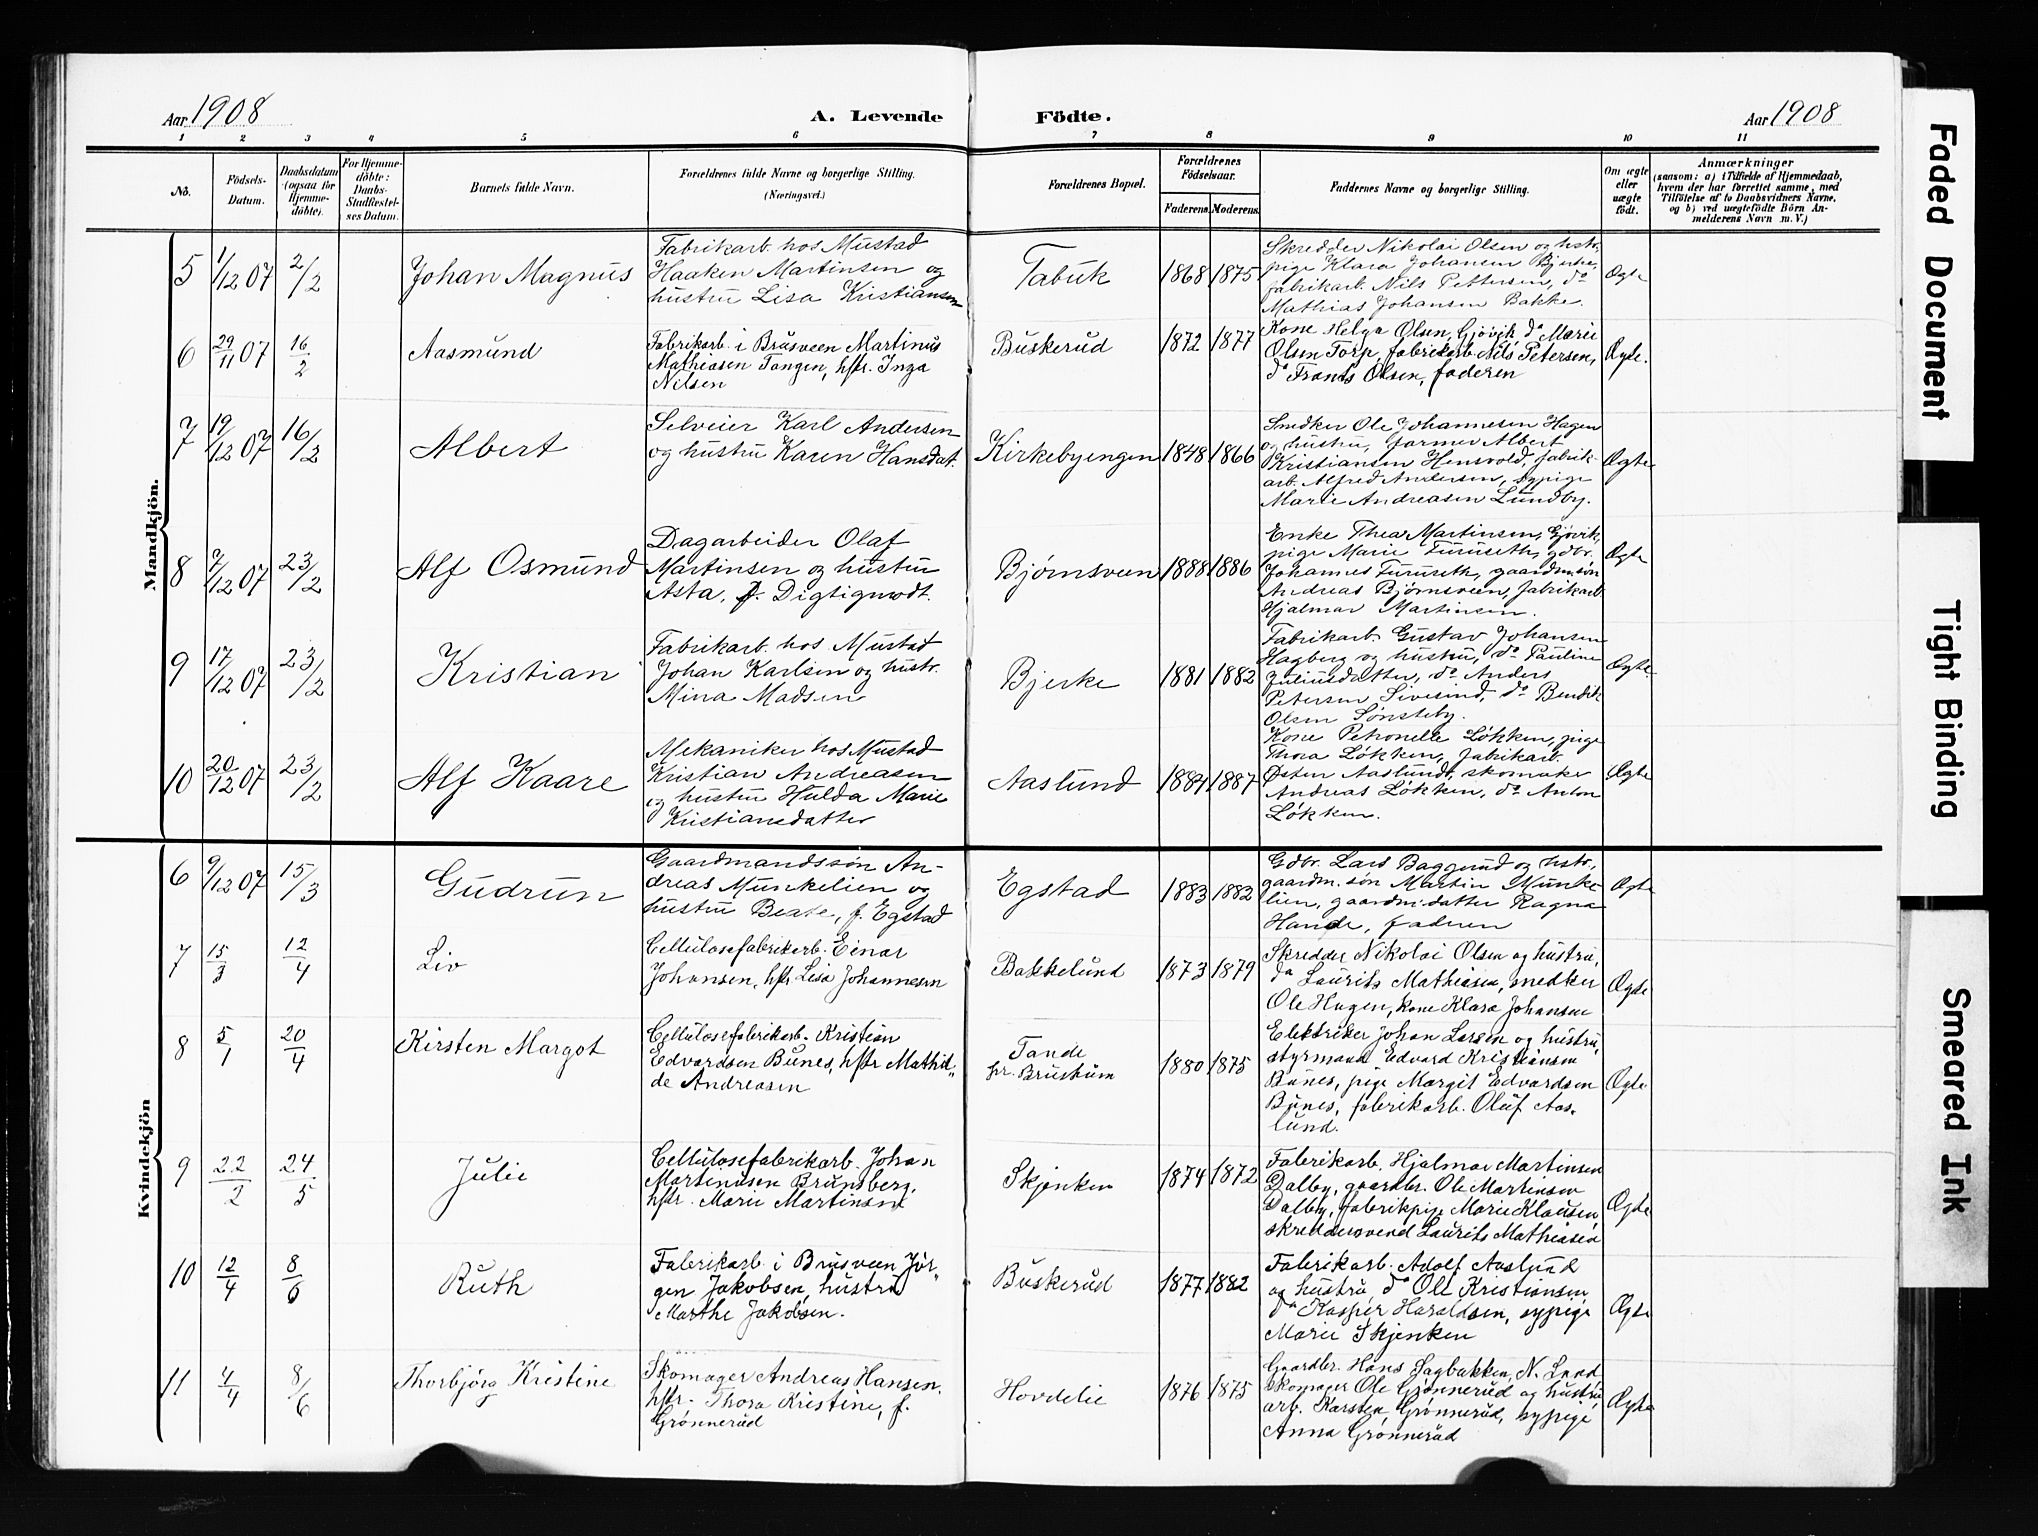 Aar 1908
A. Levende
Födte.
Aar 1908
1 2 3 4 5 6 7 8 9 10 11
No.
Födsels-Datum.
Daabsdatum (ogsaa for Hjemme-döbte).
For Hjemme-döbte: Daabs-Stadfæstel-ses Datum.
Barnets fulde Navn.
Forældrenes fulde Navne og borgerlige Stilling.
(Næringsvei.)
Forældrenes Bopæl.
Forældrenes Födselsaar.
Faderens. Moderens.
Faddernes Navne og borgerlige Stilling.
Om ægte eller uægte födt.
Anmærkninger
(saasom: a) i Tilfælde af Hjemmedaab,
hvem der har forrettet samme, med
Tilföielse af to Daabsvidners Navne,
og b) ved uægtefödte Börn An-
melderens Navn m. V.)
Mandkjön.
5 1/12 07 2/2 Johan Magnus
Fabrikarb. hos Mustad
Haaken Martinsen og
hustru Lisa Kristiansen
Tabuk 1868 1875
Skredder Nikolai Olsen og hstr.
pige Klara Johansen Bjerke,
fabrikarb. Nils Pettersen, do
Mathias Johansen Bakke.
Ægte
6 29/11 07 16/2 Aasmund
Fabrikarb i Brusveen Martinus
Mathiasen Tangen, hstr. Inga
Nilsen
Buskerud 1872 1877
Kone Helga Olsen, Gjövik, do Marie
Olsen Torp, fabrikarb. Nils Petersen,
do Frants Olsen, faderen
Ægte.
7 19/12 07 16/2 Albert
Selveier Karl Andersen
og hustru Karen Hansdat.
Kirkebyengen 1848 1866
Snedker Ole Johannesen Hagen
og hustru, farmer Albert
Kristiansen Hensvold, fabrik-
arb. Alfred Andersen, sypige
Marie Andreasen Lundby.
Ægte
8 7/12 07 23/2 Alf Osmund
Dagarbeider Olaf
Martinsen og hustru
Asta, f. Digtigmodt.
Bjørnsveen 1888 1886
Enke Thea Martinsen, Gjøvik,
pige Marie Furuseth, gdbr.
Johannes Furuseth, gaardm.søn
Andreas Bjørnsveen, fabrikarb
Hjalmar Martinsen.
Ægte
9 17/12 07 23/2 Kristian
Fabrikarb. hos Mustad
Johan Karlsen og hustr.
Mina Madsen
Bjerke 1881 1882
Fabrikarb. Gustav Johansen
Hagberg og hustru, do Pauline
Juliusdatter, do Anders
Petersen Sivesind, do Bendik
Olsen Sønsteby.
Ægte
10 20/12 07 23/2 Alf Kaare
Mekaniker hos Mustad
Kristian Andreasen
og hustru Hulda Marie
Kristiansdatter
Aaslund 1884 1887
Kone Petronelle Løkken, pige
Thora Løkken, fabrikarb.
Østen Aaslund, skomaker
Andreas Løkken, do Anton
Løkken.
Ægte
Kvindekjön
6 9/12 07 15/3 Gudrun
Gaardmandssøn An-
dreas Munkelien og
hustru Beate, f. Egstad
Egstad 1883 1883
Gdbr. Lars Baggerud og hstr.,
gaardm.søn Martin Munke-
lien, gaardm.datter Ragna
Hande, faderen
Ægte
7 15/3 12/4 Liv
Cellulosefabrikarb. Einar
Johansen, hstr Lisa Johannesen
Bakkelund 1873 1879
Skredder Nikolai Olsen og hustru,
do Laurits Mathiasen, snedker
Ole Hagen, kone Klara Johansen
Ægte
8 5/1 20/4 Kirsten Margot
Cellulosefabrikarb. Kristian
Edvardsen Bunes, hstr Mathil-
de Andreasen
Tande
pr. Brustum 1880 1875
Elektriker Johan Larsen og hustru,
styrmand Edvard Kristiansen
Bunes, pige Margit Edvardsen
Bunes, fabrikarb. Oluf Aas-
lund.
Ægte
9 22/2 24/5 Julie
Cellulosefabrikarb. Johan
Martinusen Brunsberg,
hstr. Marie Martinsen
Skjenken 1874 1872
Fabrikarb. Hjalmar Martinsen
Dalby, gaardbr. Ole Martinsen
Dalby, fabrikpige Marie Klausen,
skreddersvend Laurits Mathiasen
Ægte
10 12/4 8/6 Ruth
Fabrikarb. i Brusveen Jör-
gen Jakobsen, hustru
Marthe Jakobsen.
Buskerud 1877 1882
Fabrikarb. Adolf Aaslund
og hustru, do Ole Kristiansen
do Kasper Haraldsen, sypige
Marie Skjenken
Ægte
11 4/4 8/6 Thorbjörg Kristine
Skomager Andreas Hansen,
hstr. Thora Kristine, f.
Grønnerud
Hovdelie 1876 1875
Gaardbr. Hans Sagbakken, N. Land
skomager Ole Grønnerud og hustru,
arb. Karsten Grønnerud, sypige
Anna Grønnerud
Ægte
Faded Document
Tight Binding
Smeared Ink